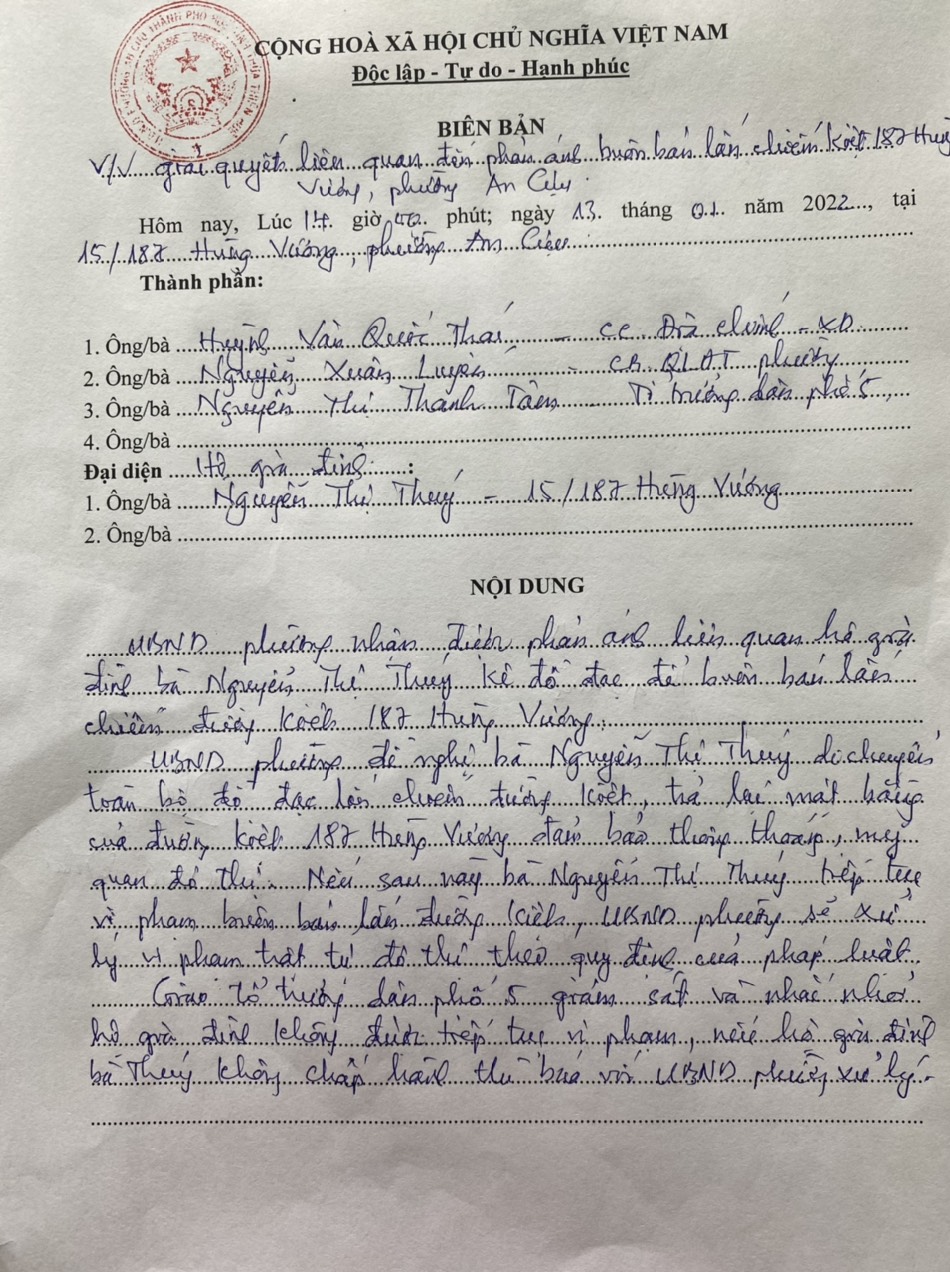 CỘNG HOÀ XÃ HỘI CHỦ NGHĨA VIỆT NAM
Độc lập - Tự do - Hạnh phúc
BIÊN BẢN
V/v giải quyết liên quan đến phản ánh buôn bán lấn chiếm kiệt 187 Hùng
Vương, phường An Cựu
Hôm nay, Lúc 14 giờ phút; ngày 13 tháng 01 năm 2022, tại
15/187 Hùng Vương, phường An Cựu
Thành phần:
1. Ông/bà Huỳnh Văn Quốc Thái - CC Địa chính - XD
2. Ông/bà Nguyễn Xuân Luyến - CB QLĐT phường
3. Ông/bà Nguyễn Thị Thanh Tâm - Tổ trưởng dân phố 5
4. Ông/bà
Đại diện Hộ gia đình:
1. Ông/bà Nguyễn Thị Thuý - 15/187 Hùng Vương
2. Ông/bà
NỘI DUNG
UBND phường nhận được phản ánh liên quan hộ gia
đình bà Nguyễn Thị Thuý kê đồ đạc để buôn bán lấn
chiếm đường kiệt 187 Hùng Vương.
UBND phường đề nghị bà Nguyễn Thị Thuý di chuyển
toàn bộ đồ đạc lấn chiếm đường kiệt, trả lại mặt bằng
của đường kiệt 187 Hùng Vương đảm bảo thông thoáng, mỹ
quan đô thị. Nếu sau này bà Nguyễn Thị Thuý tiếp tục
vi phạm buôn bán lấn đường kiệt, UBND phường sẽ xử
lý vi phạm trật tự đô thị theo quy định của pháp luật.
Giao tổ trưởng dân phố 5 giám sát và nhắc nhở
hộ gia đình không được tiếp tục vi phạm, nếu hộ gia đình
bà Thuý không chấp hành thì báo với UBND phường xử lý.